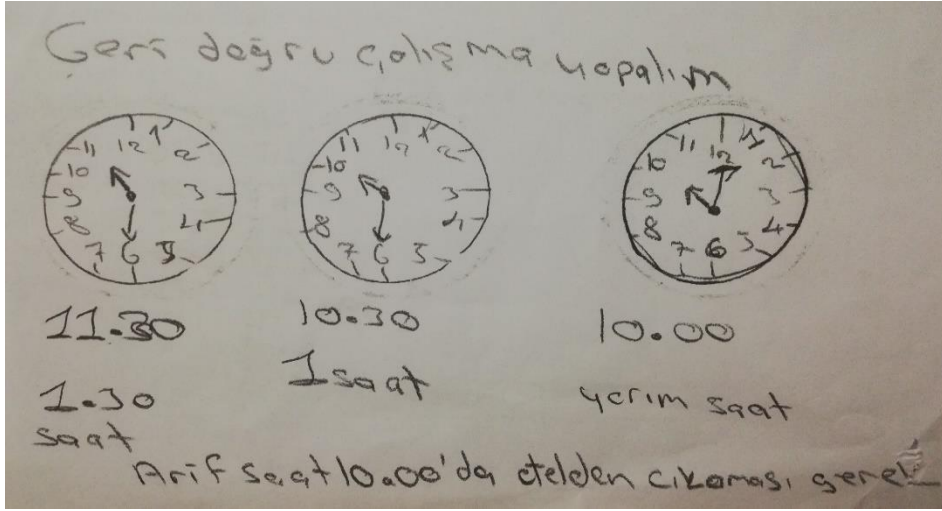 Geri doğru çalışma yapalım
11 12 1 2 3 4 5 6 7 8 9 10
11 12 1 2 3 4 5 6 7 8 9 10
11 12 1 2 3 4 5 6 7 8 9 10
11.30
10.30
10.00
1.30 saat
1 saat
yarım saat
Arif saat 10.00'da otelden çıkaması gerek